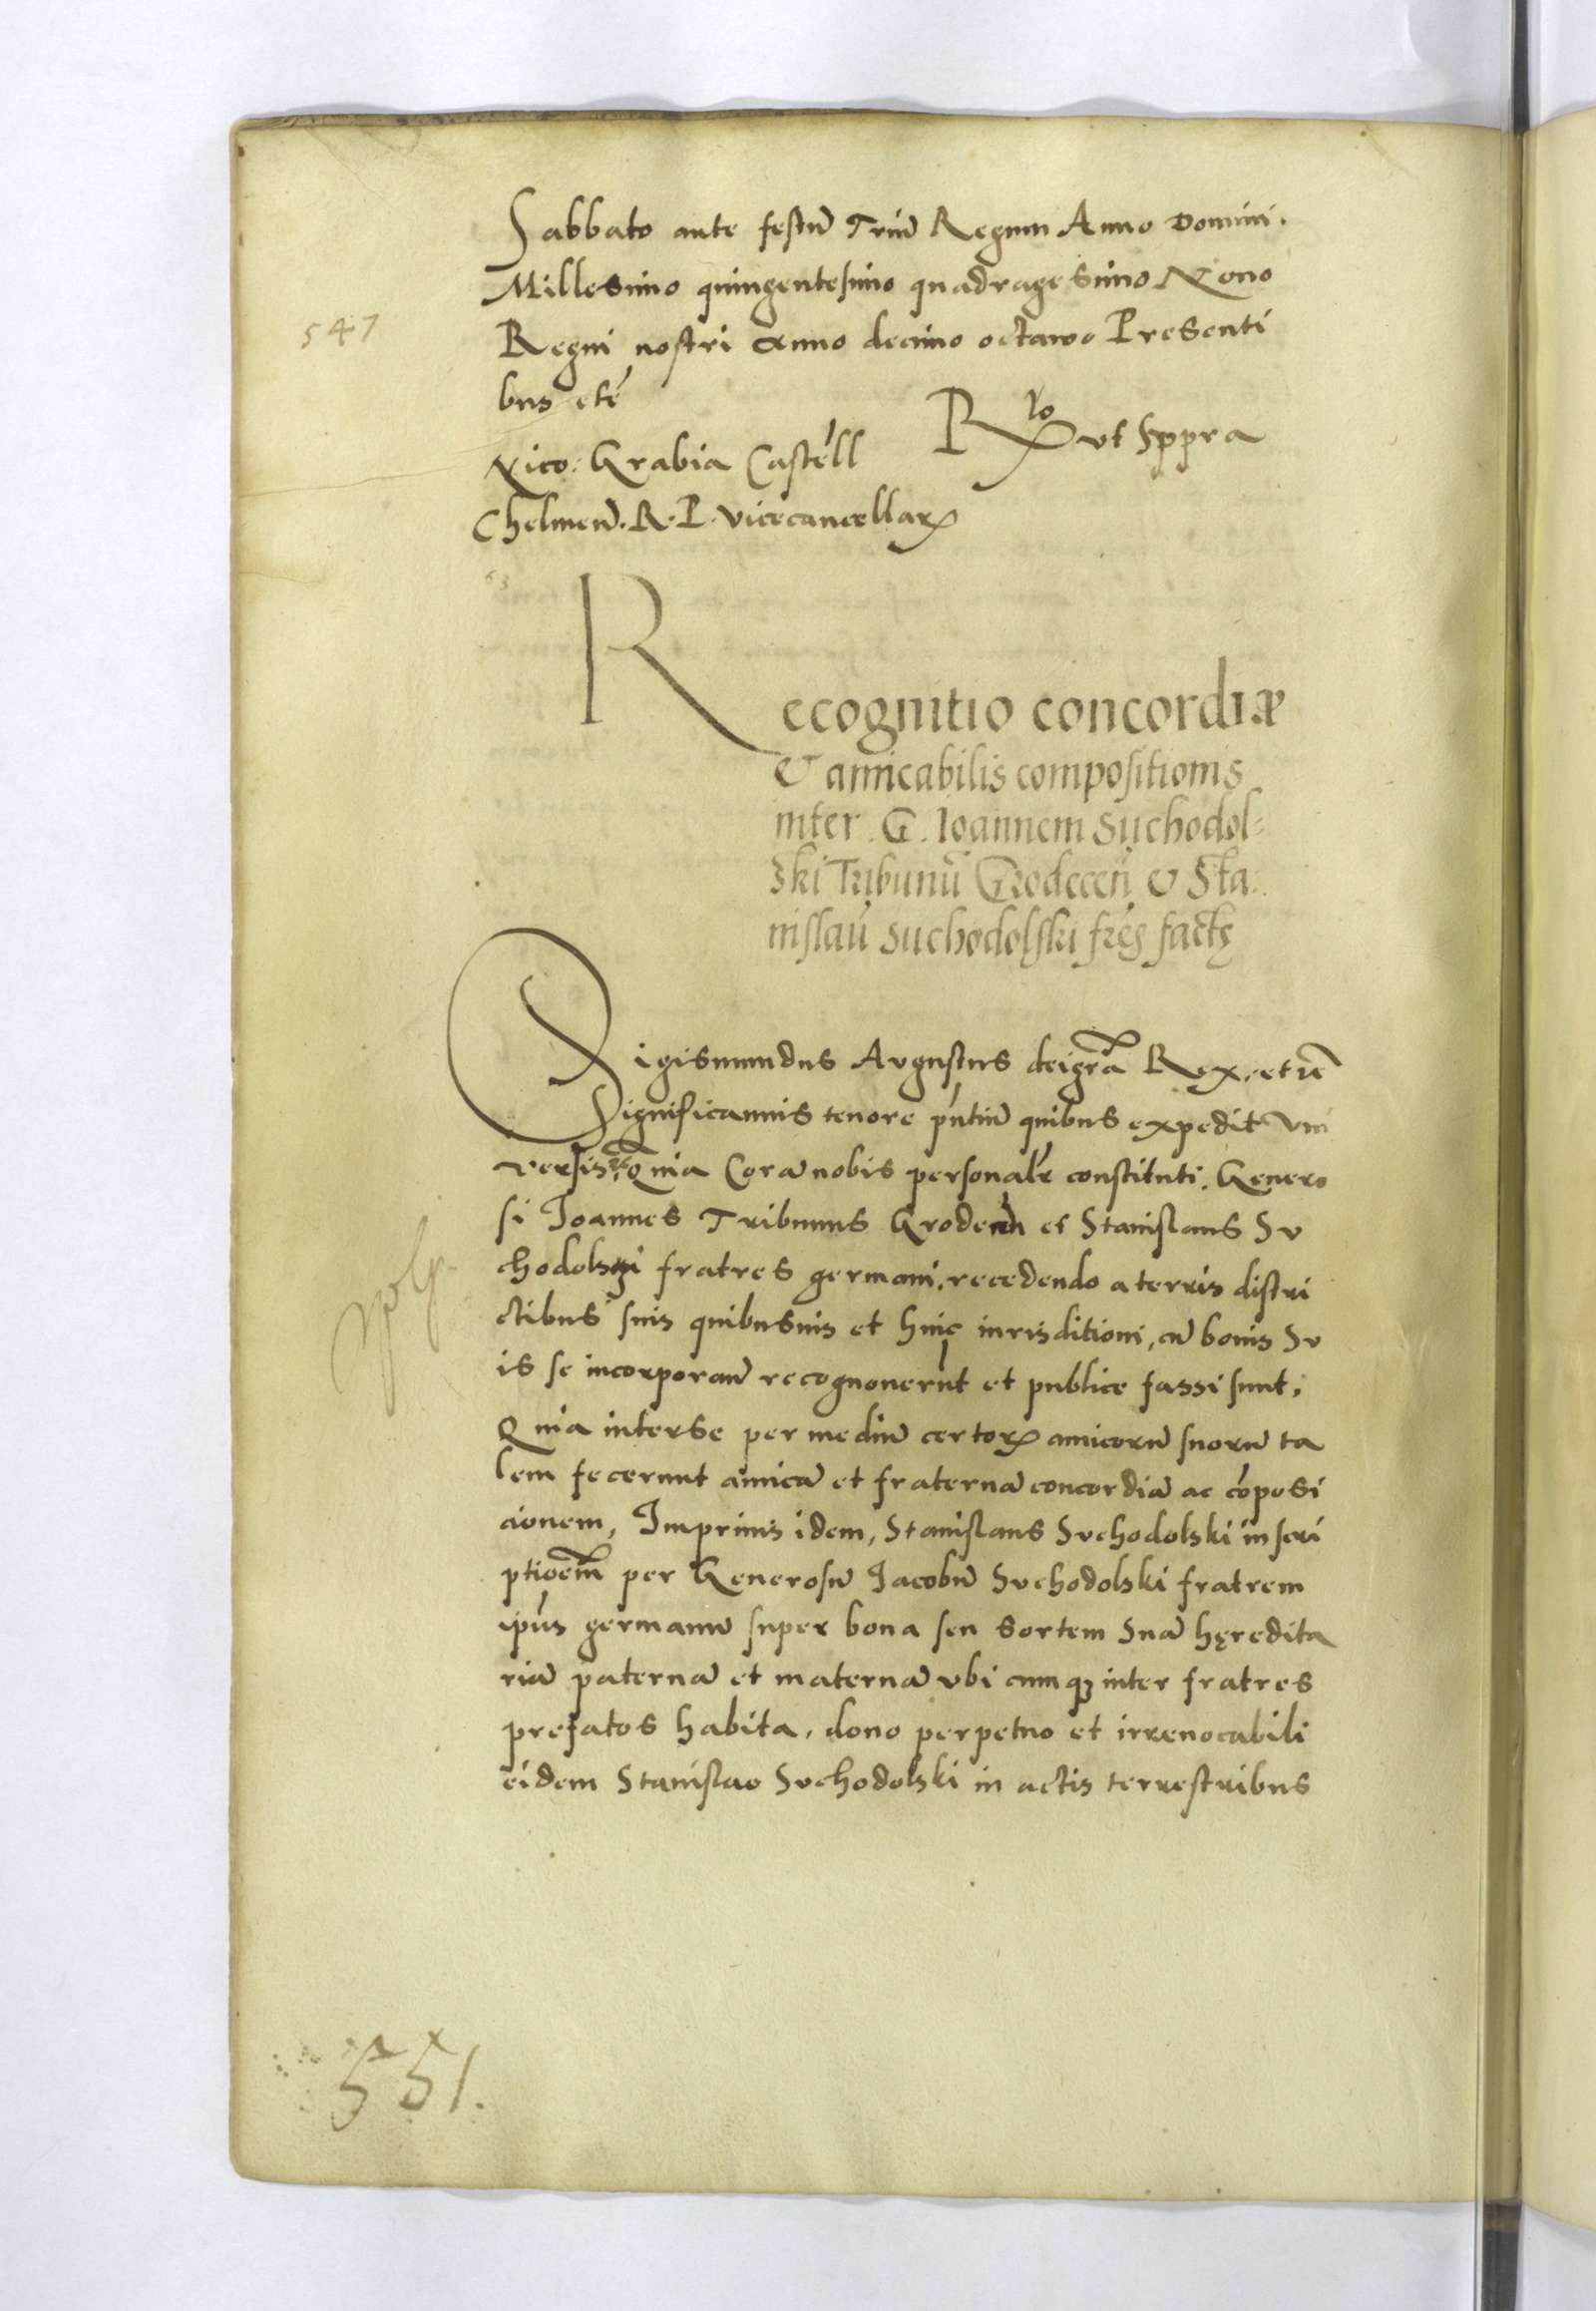 Sabbato ante festū Triū Regum Anno Domini.
Millesimo quingentesimo quadragesimo Nono
547
Regni nostri Anno decimo octavo Presenti
bus etć
Rᵗᵒ ut Suppra
Nico: Grabia Castell
Chelmeñ. R. P. vicecancellar
63
Recognitio concordiæ
& amicabilis compositionis
inter G. Ioannem Suchodol=
ski Tribunū Grodeceñ & Sta
nislaū Suchodolski frēs factę
Sigismundus Avgustus deigrā Rex etcē
Significamus tenore pńtiū quibus expedit vni
versis Quia Corā nobis personalr constituti. Genero
si Ioannes Tribunus Grodeceñ et Stanislaus Sv
chodolski fratres germani, recedendo a terris distri
ctibus suis quibusuis et huic iurisditioni, cū bonis Sv
is se incorporañ recognouerūt et publice fassi sunt,
Quia interse per mediū certor amicorū suorū ta
lem fecerunt amicā et fraternā concordiā ac cōposi
cionem, Imprimis idem, Stanislaus Svchodolski inscri
ptioēm per Generosū Iacobū Svchodolski fratrem
ipūs germanū super bona seu sortem Suā hęredita
riā paternā et maternā vbi cumqȝ inter fratres
prefatos habita, dono perpetuo et irreuocabili
eidem Stanislao Svchodolski in actis terrestribus
551.